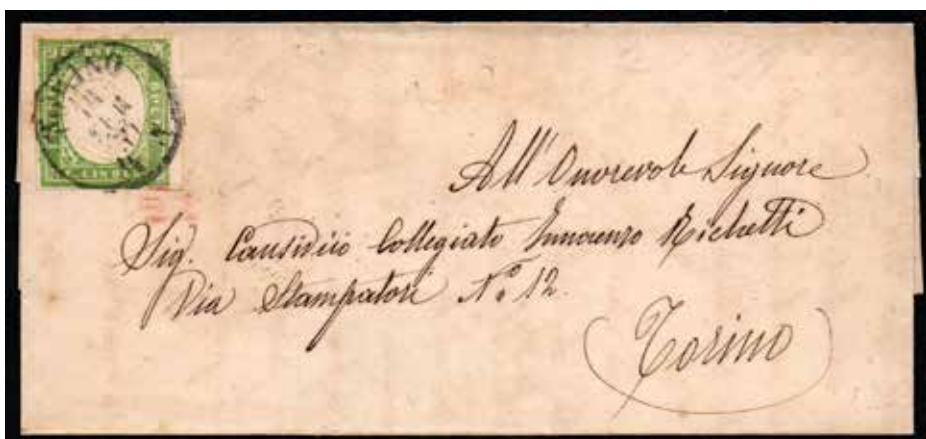 TORINO
All' Onorevole Signore
Sig. Causidico Collegiato Innocenzo Richetti
Via Stampatori Nº 12.
Torino